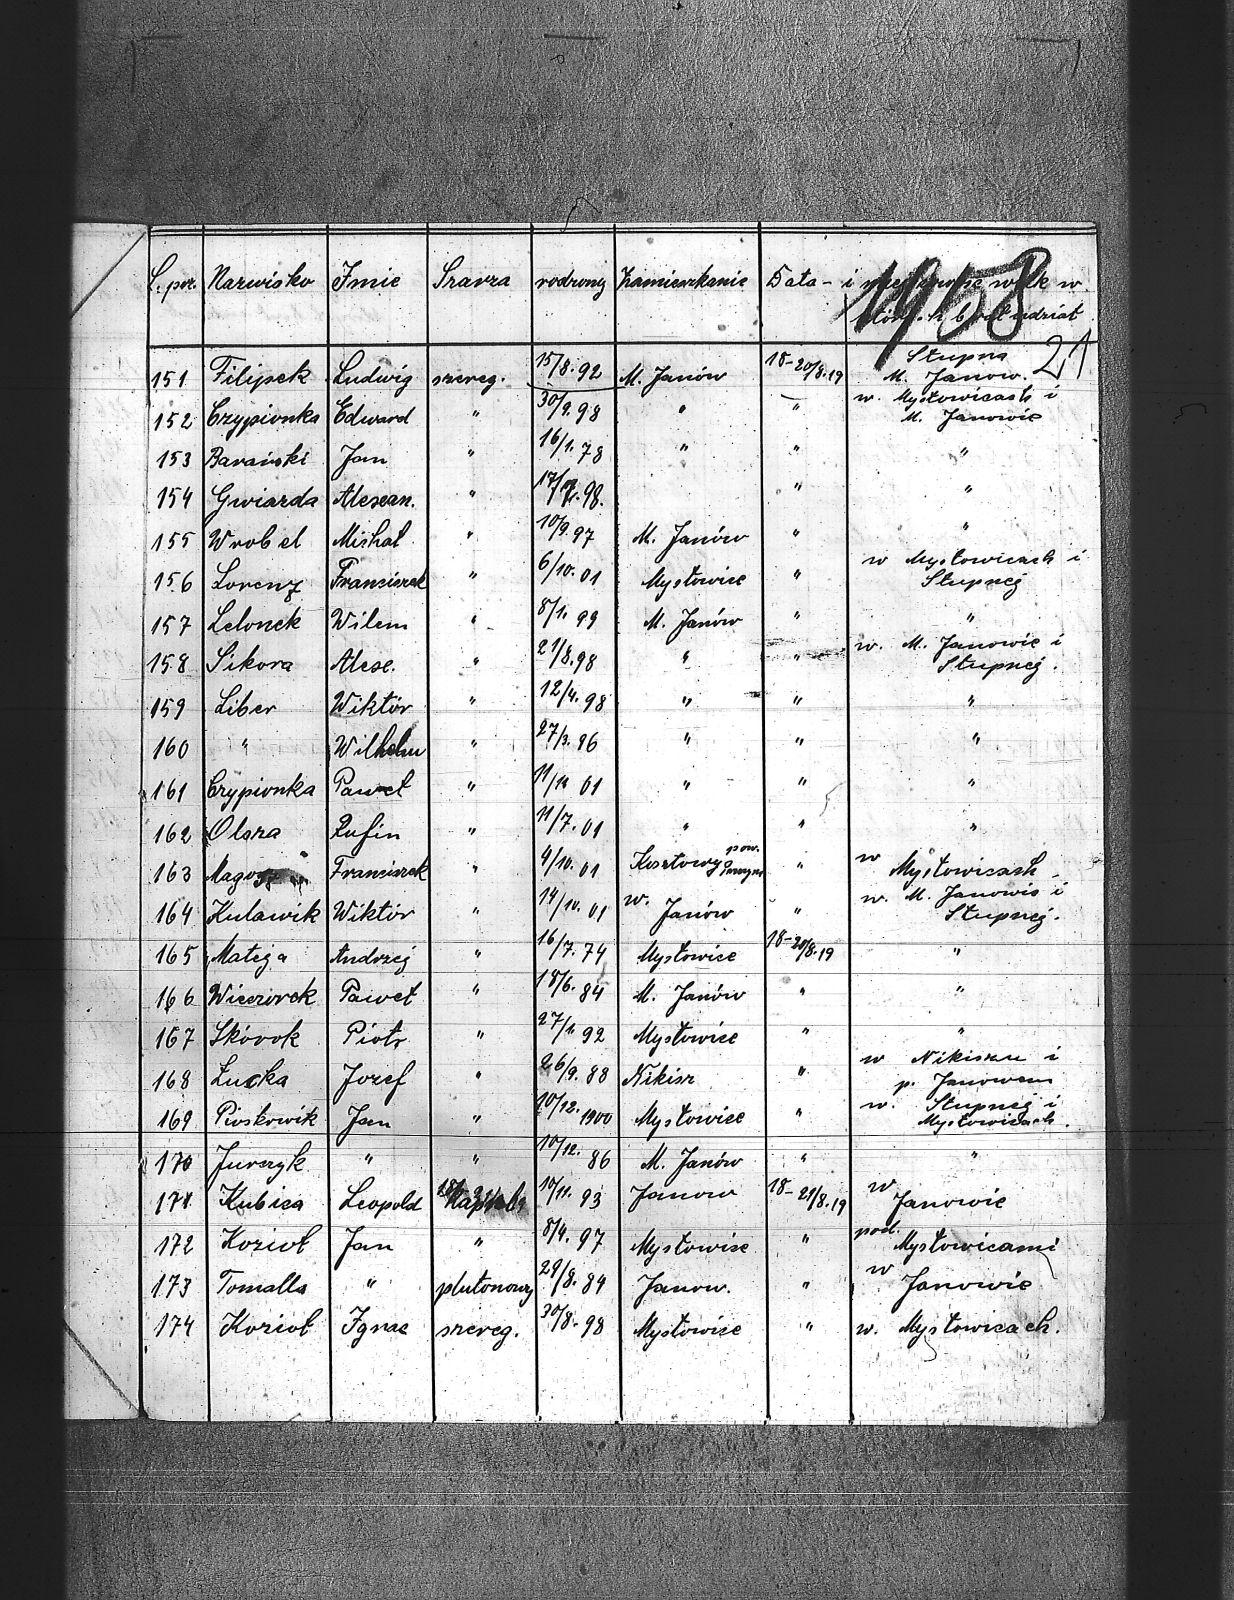 L. por. Nazwisko Imie Szarza rodzony Zamieszkanie Data - i walk w
1958
21
151 Filipek Ludwig szereg. 15/8. 92 M. Janów 18-20/8.19 Słupna
M. Janow.
152 Czypionka Edward " 30/9. 98 " " w. Mysłowicach i
M. Janowie
153 Barański Jan " 16/1. 78 " " "
154 Gwiazda Alesean. " 98. " "
155 Wrobel Michał " 10/9. 97 M. Janów " "
156 Lorenz Franciszek " 6/10. 01 Mysłowice " w Mysłowicach i
Słupnej
157 Lelonek Wilem " 8/1. 99 M. Janów " "
158 Sikora Alese. " 21/8. 98 " " w. M. Janowie i
Słupnej.
159 Liber Wiktór " 12/4. 98 " " "
160 " Wilhelm " 27/3. 96 " " "
161 Czypionka Paweł " 11/11 01 " " "
162 Olsza Rufin " 11/7. 01 " " "
163 Franciszek " 4/10. 01 Kosztowy pow. " w Mysłowicach
164 Kulawik Wiktór " 14/10. 01 w. Janów " w. M. Janowie i
Słupnej.
165 Mateja Andrzej " 16/7. 74 Mysłowice 18-20/8.19 "
166 Wieczorek Paweł " 18/6. 84 M. Janów " "
167 Skórok Piotr " 27/1. 92 Mysłowice " "
168 Lucka Jozef " 26/9. 88 Nikisz " w Nikiszu i
p. Janowem
169 Pioskowik Jan " 10/12. 1900 Mysłowice " w. Słupnej i
Mysłowicach.
170 Jurczyk " " 10/12. 86 M. Janów " "
171 Kubica Leopold 10/11. 93 Janow 18-21/8.19 w Janowie
172 Kozioł Jan " 8/4. 97 Mysłowice " pod. Mysłowicami
173 Tomalla " plutonowy 29/8. 84 Janow. " w Janowie
174 Kozioł Ignac szereg. 30/8. 98 Mysłowice " w. Mysłowicach.